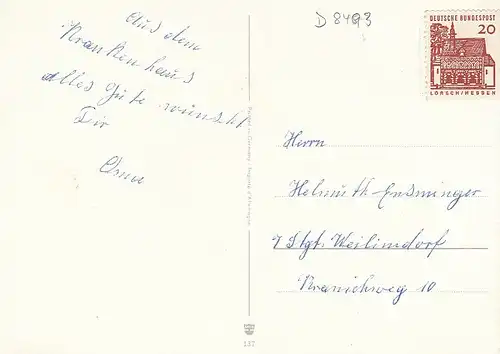 Aus dem
Krankenhaus
alles Gute wünscht
Dir
D 8493
DEUTSCHE BUNDESPOST
20
LORSCH/HESSEN
Herrn
Helmuth Ensminger
7 Stgt. Weilimdorf
Kranichweg 10
137